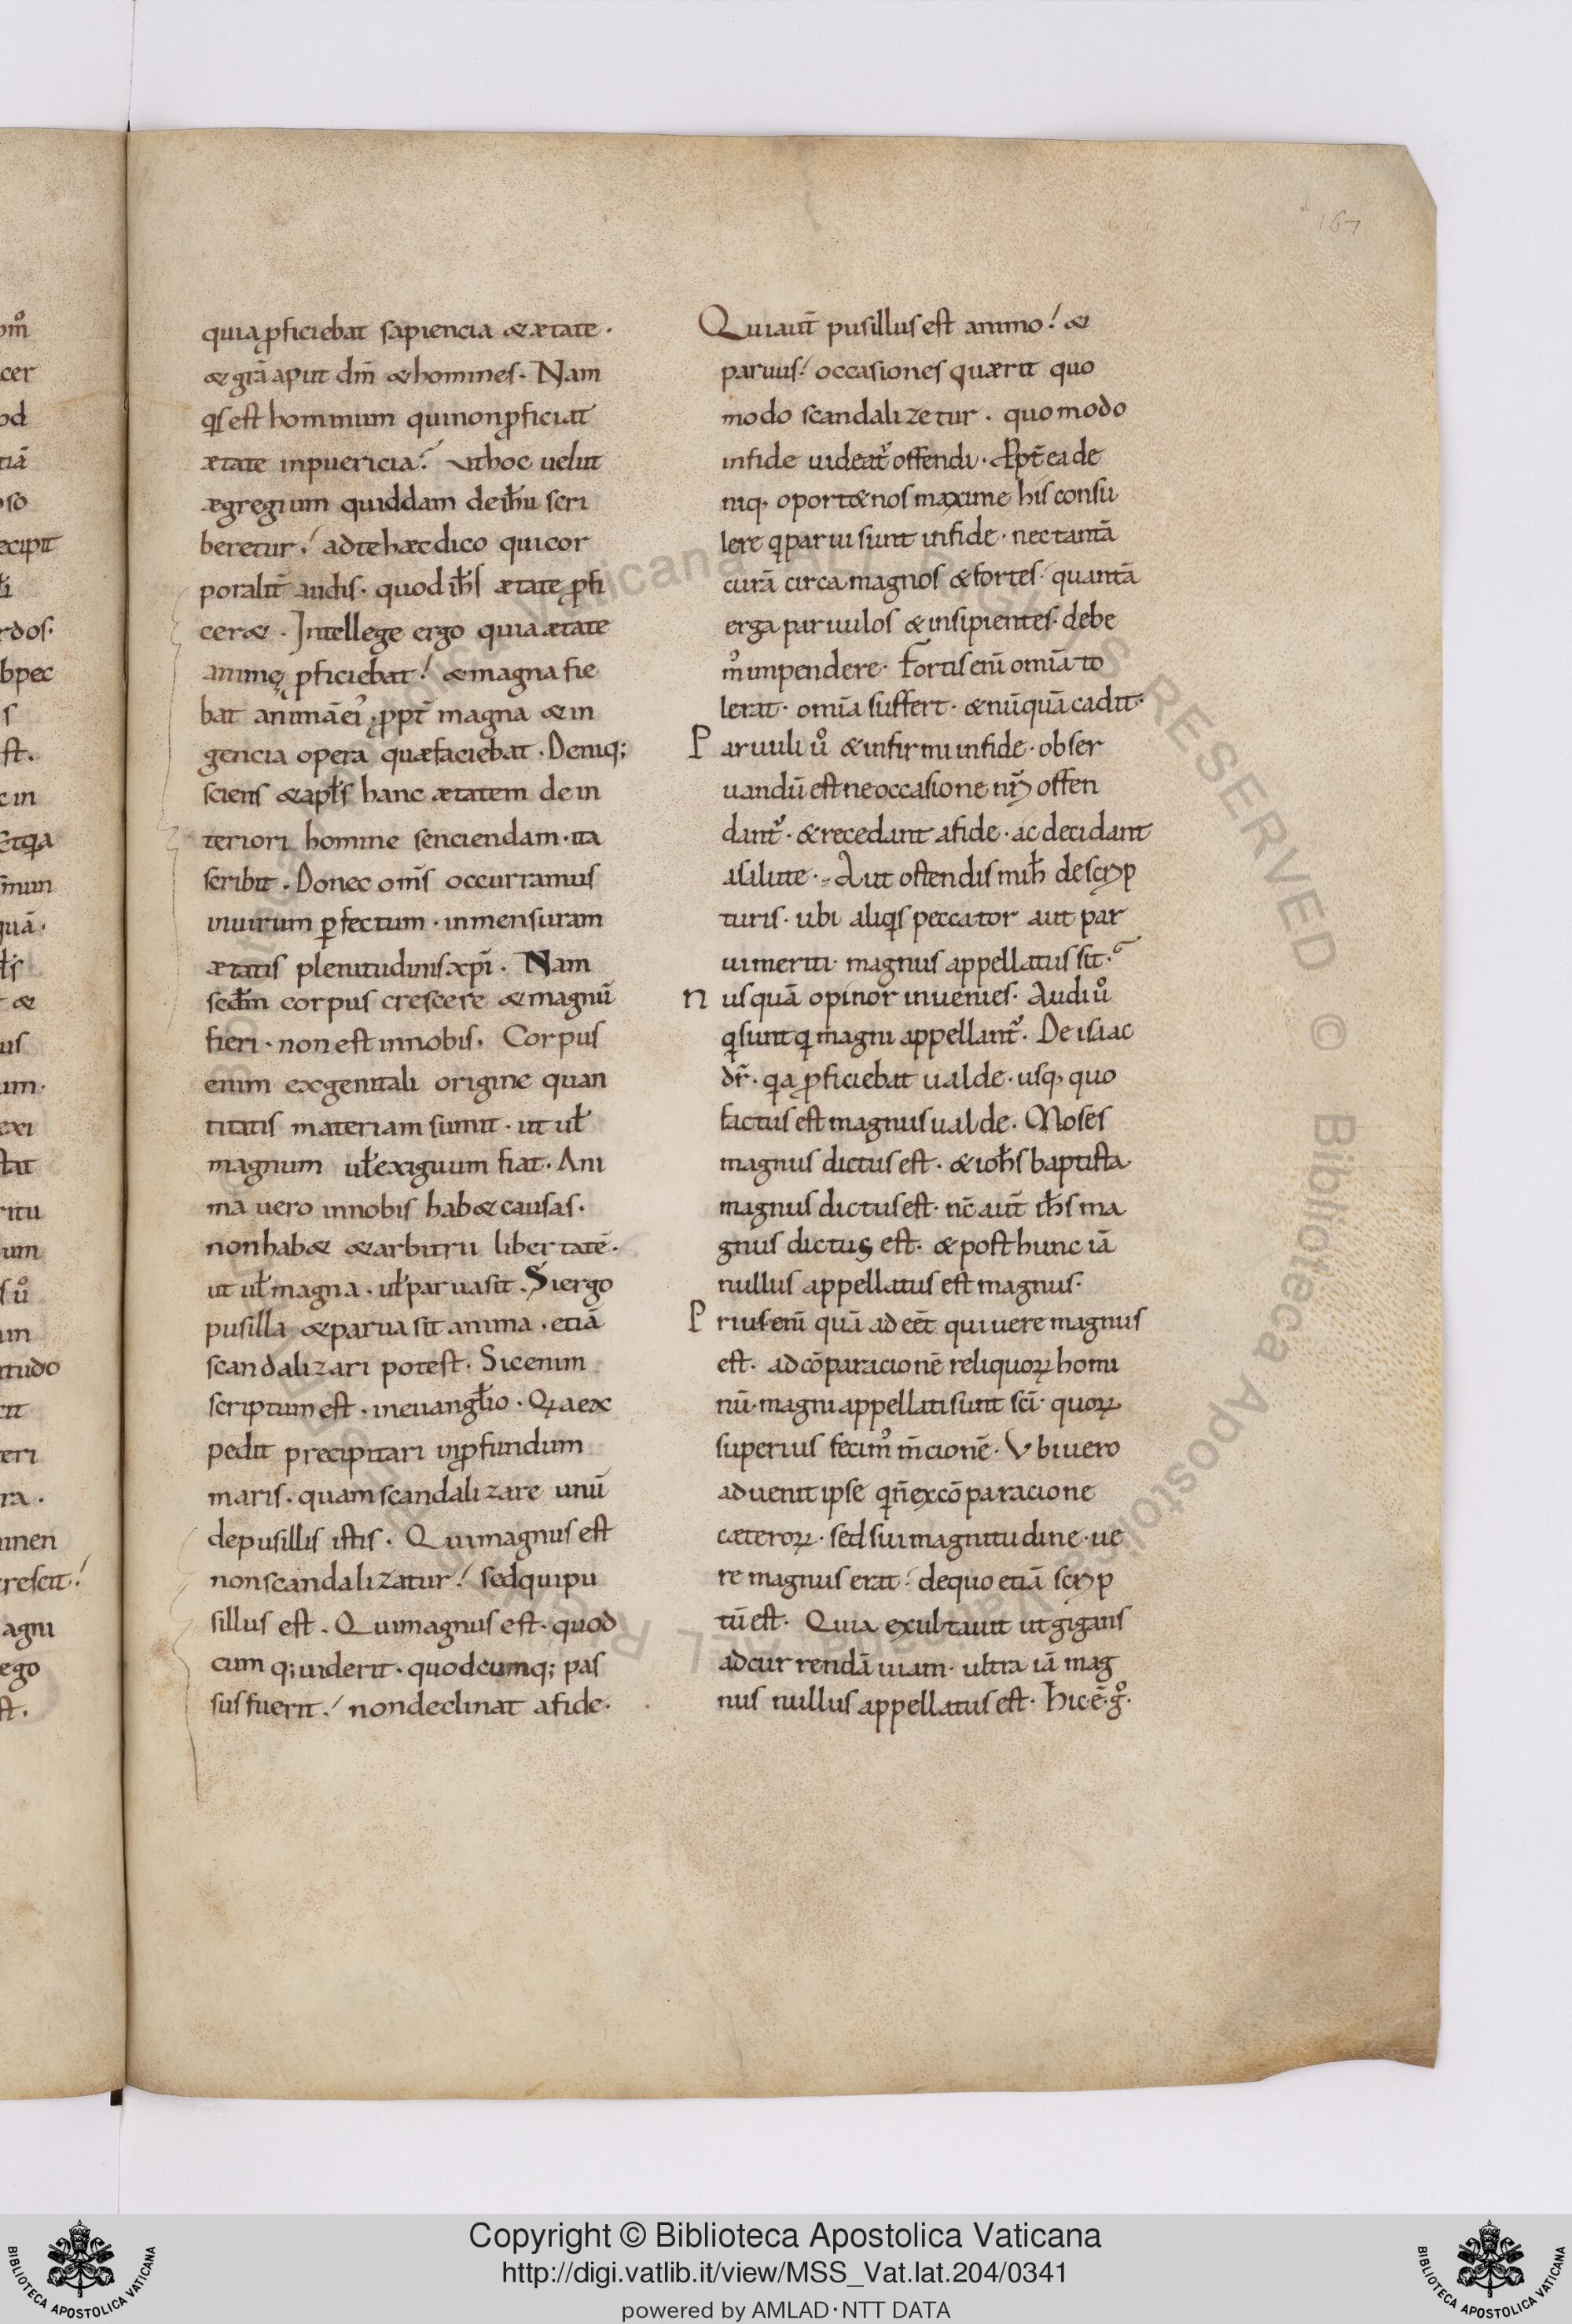 167
quia ꝓficiebat sapiencia & ætate ·
& grã aput dm̃ & homines · Nam
qͥs est hominum qui non ꝓficiat
ætate in puericia? ut hoc uelut
ægregium quiddam de ih̃u scri
beretur! ad te hæc dico qui cor
poralit̃ audis · quod ih̃s ætate ꝓfi
cer& · Intellege ergo quia ætate
animę ꝓficiebat! & magna fie
bat anima ei᾽ · ꝓpt̃ magna & in
gencia opera quæ faciebat · Deniq;
sciens & apl̃s hanc ætatem de in
teriori homine senciendam · ita
scribit · Donec om̃s occurramus
in uirum ꝑfectum · in mensuram
ætatis plenitudinis xpĩ · Nam
sedm̃ corpus crescere & magnũ
fieri · non est in nobis · Corpus
enim ex genitali origine quan
titatis materiam sumit · ut ul̃
magnum ul̃ exiguum fiat · Ani
ma uero in nobis hab& causas ·
non hab& & arbitrii libertatẽ ·
ut ul̃ magna · ul̃ parua sit · Si ergo
pusilla & parua sit anima · etiã
scandalizari potest · Sic enim
scriptum est · in euangl̃io · Qͥa ex
pedit precipitari in ꝓfundum
maris · quam scandalizare unũ
de pusillis istis · Qui magnus est
non scandalizatur! sed qui pu
sillus est · Qui magnus est · quod
cumq; uiderit · quodcumq; pas
sus fuerit! non declinat a fide ·
Qui aut̃ pusillus est animo! &
paruus! occasiones quærit quo
modo scandalizetur · quomodo
in fide uideat᾽ offendi · Ꝓpt̃ ea de
niq, oport& nos maxime his consu
lere qͥ parui sunt in fide · nec tantã
curã circa magnos & fortes · quantã
erga paruulos & insipientes · debe
m᾽ impendere · Fortis enĩ omĩa to
lerat · omĩa suffert · & nũquã cadit ·
Paruuli uͦ & infirmi in fide · obser
uandũ est ne occasione nr̃o offen
dant᾽ · & recedant a fide · ac decidant
a salute · Aut ostendis mih̃ de scrip
turis · ubi aliqͥs peccator aut par
ui meriti · magnus appellatus sit?
nusquã opinor inuenies · Audi uͦ
qͥ sunt qͥ magni appellant᾽ · De isaac
dr̃ · qͥa ꝓficiebat ualde · usq, quo
factus est magnus ualde · Moses
magnus dictus est · & ioh̃s baptista
magnus dictus est · nc̃ aut̃ ih̃s ma
gnus dictus est · & post hunc iã
nullus appellatus est magnus ·
Prius enĩ quã adeẽt qui uere magnus
est · ad cõparacionẽ reliquoꝝ homi
nũ · magni appellati sunt scĩ · quoꝝ
superius fecim᾽ m̃cionẽ · Ubi uero
aduenit ipse qͥ ñ ex cõparacione
cæteroꝝ · sed sui magnitudine · ue
re magnus erat! de quo etiã scrip
tũ est · Quia exultauit ut gigans
ad currendã uiam · ultra iã mag
nus nullus appellatus est · Hic · ẽ · gͦ ·
Copyright © Biblioteca Apostolica Vaticana
http://digi.vatlib.it/view/MSS_Vat.lat.204/0341
powered by AMLAD·NTT DATA
BIBLIOTECA APOSTOLICA VATICANA
BIBLIOTECA APOSTOLICA VATICANA